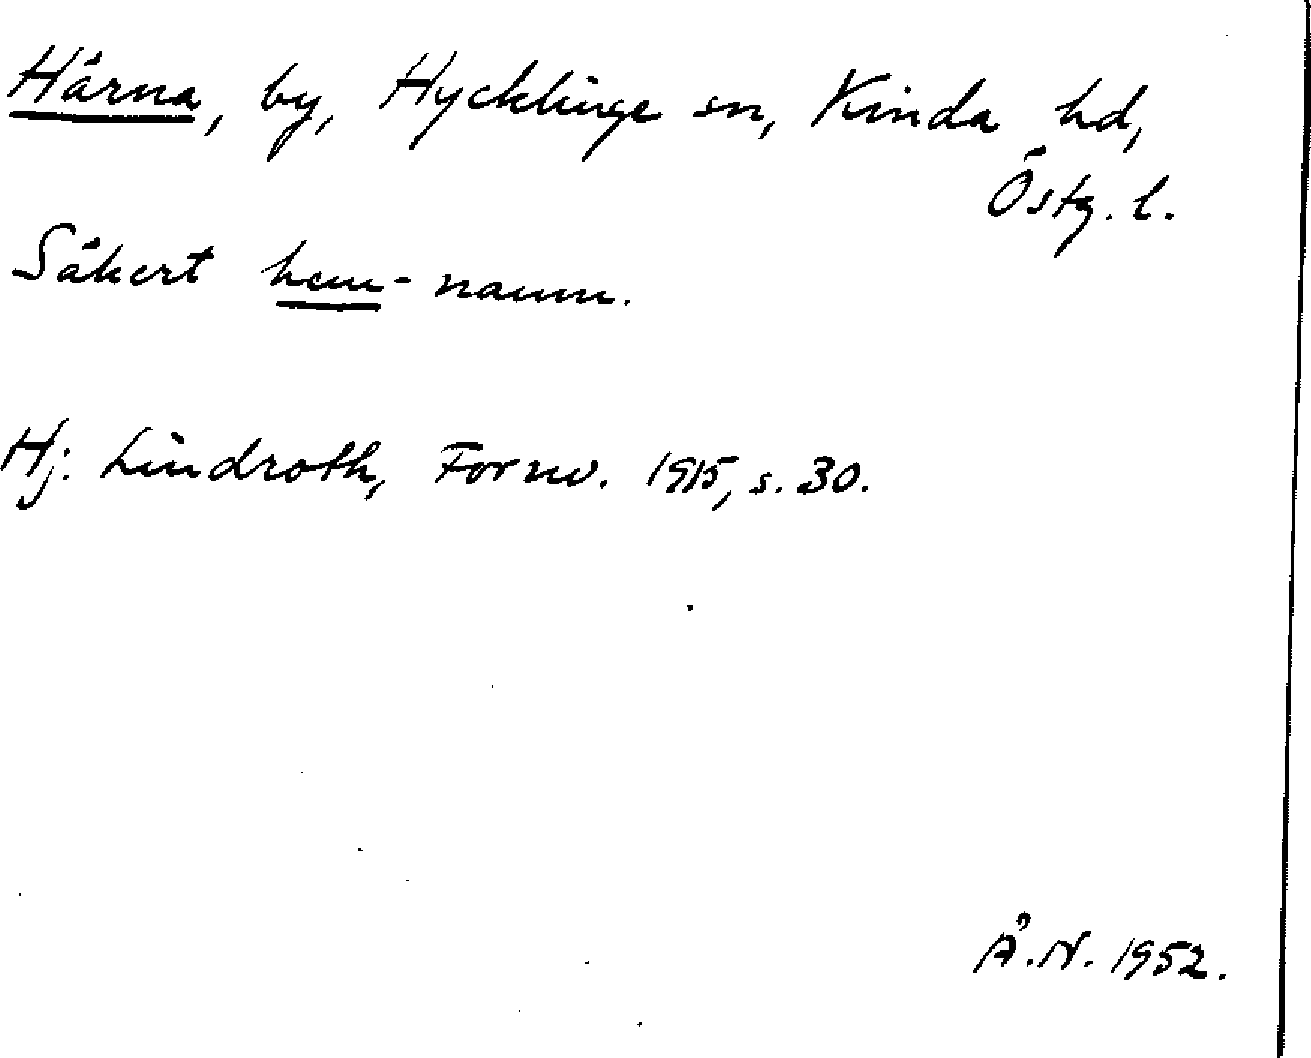 Härna, by, Hycklinge sn, Kinda hd,
Östg. l.
Säkert hem-namn.
Hj. Lindroth, Fornv. 1915, s. 30.
Å.N. 1952.